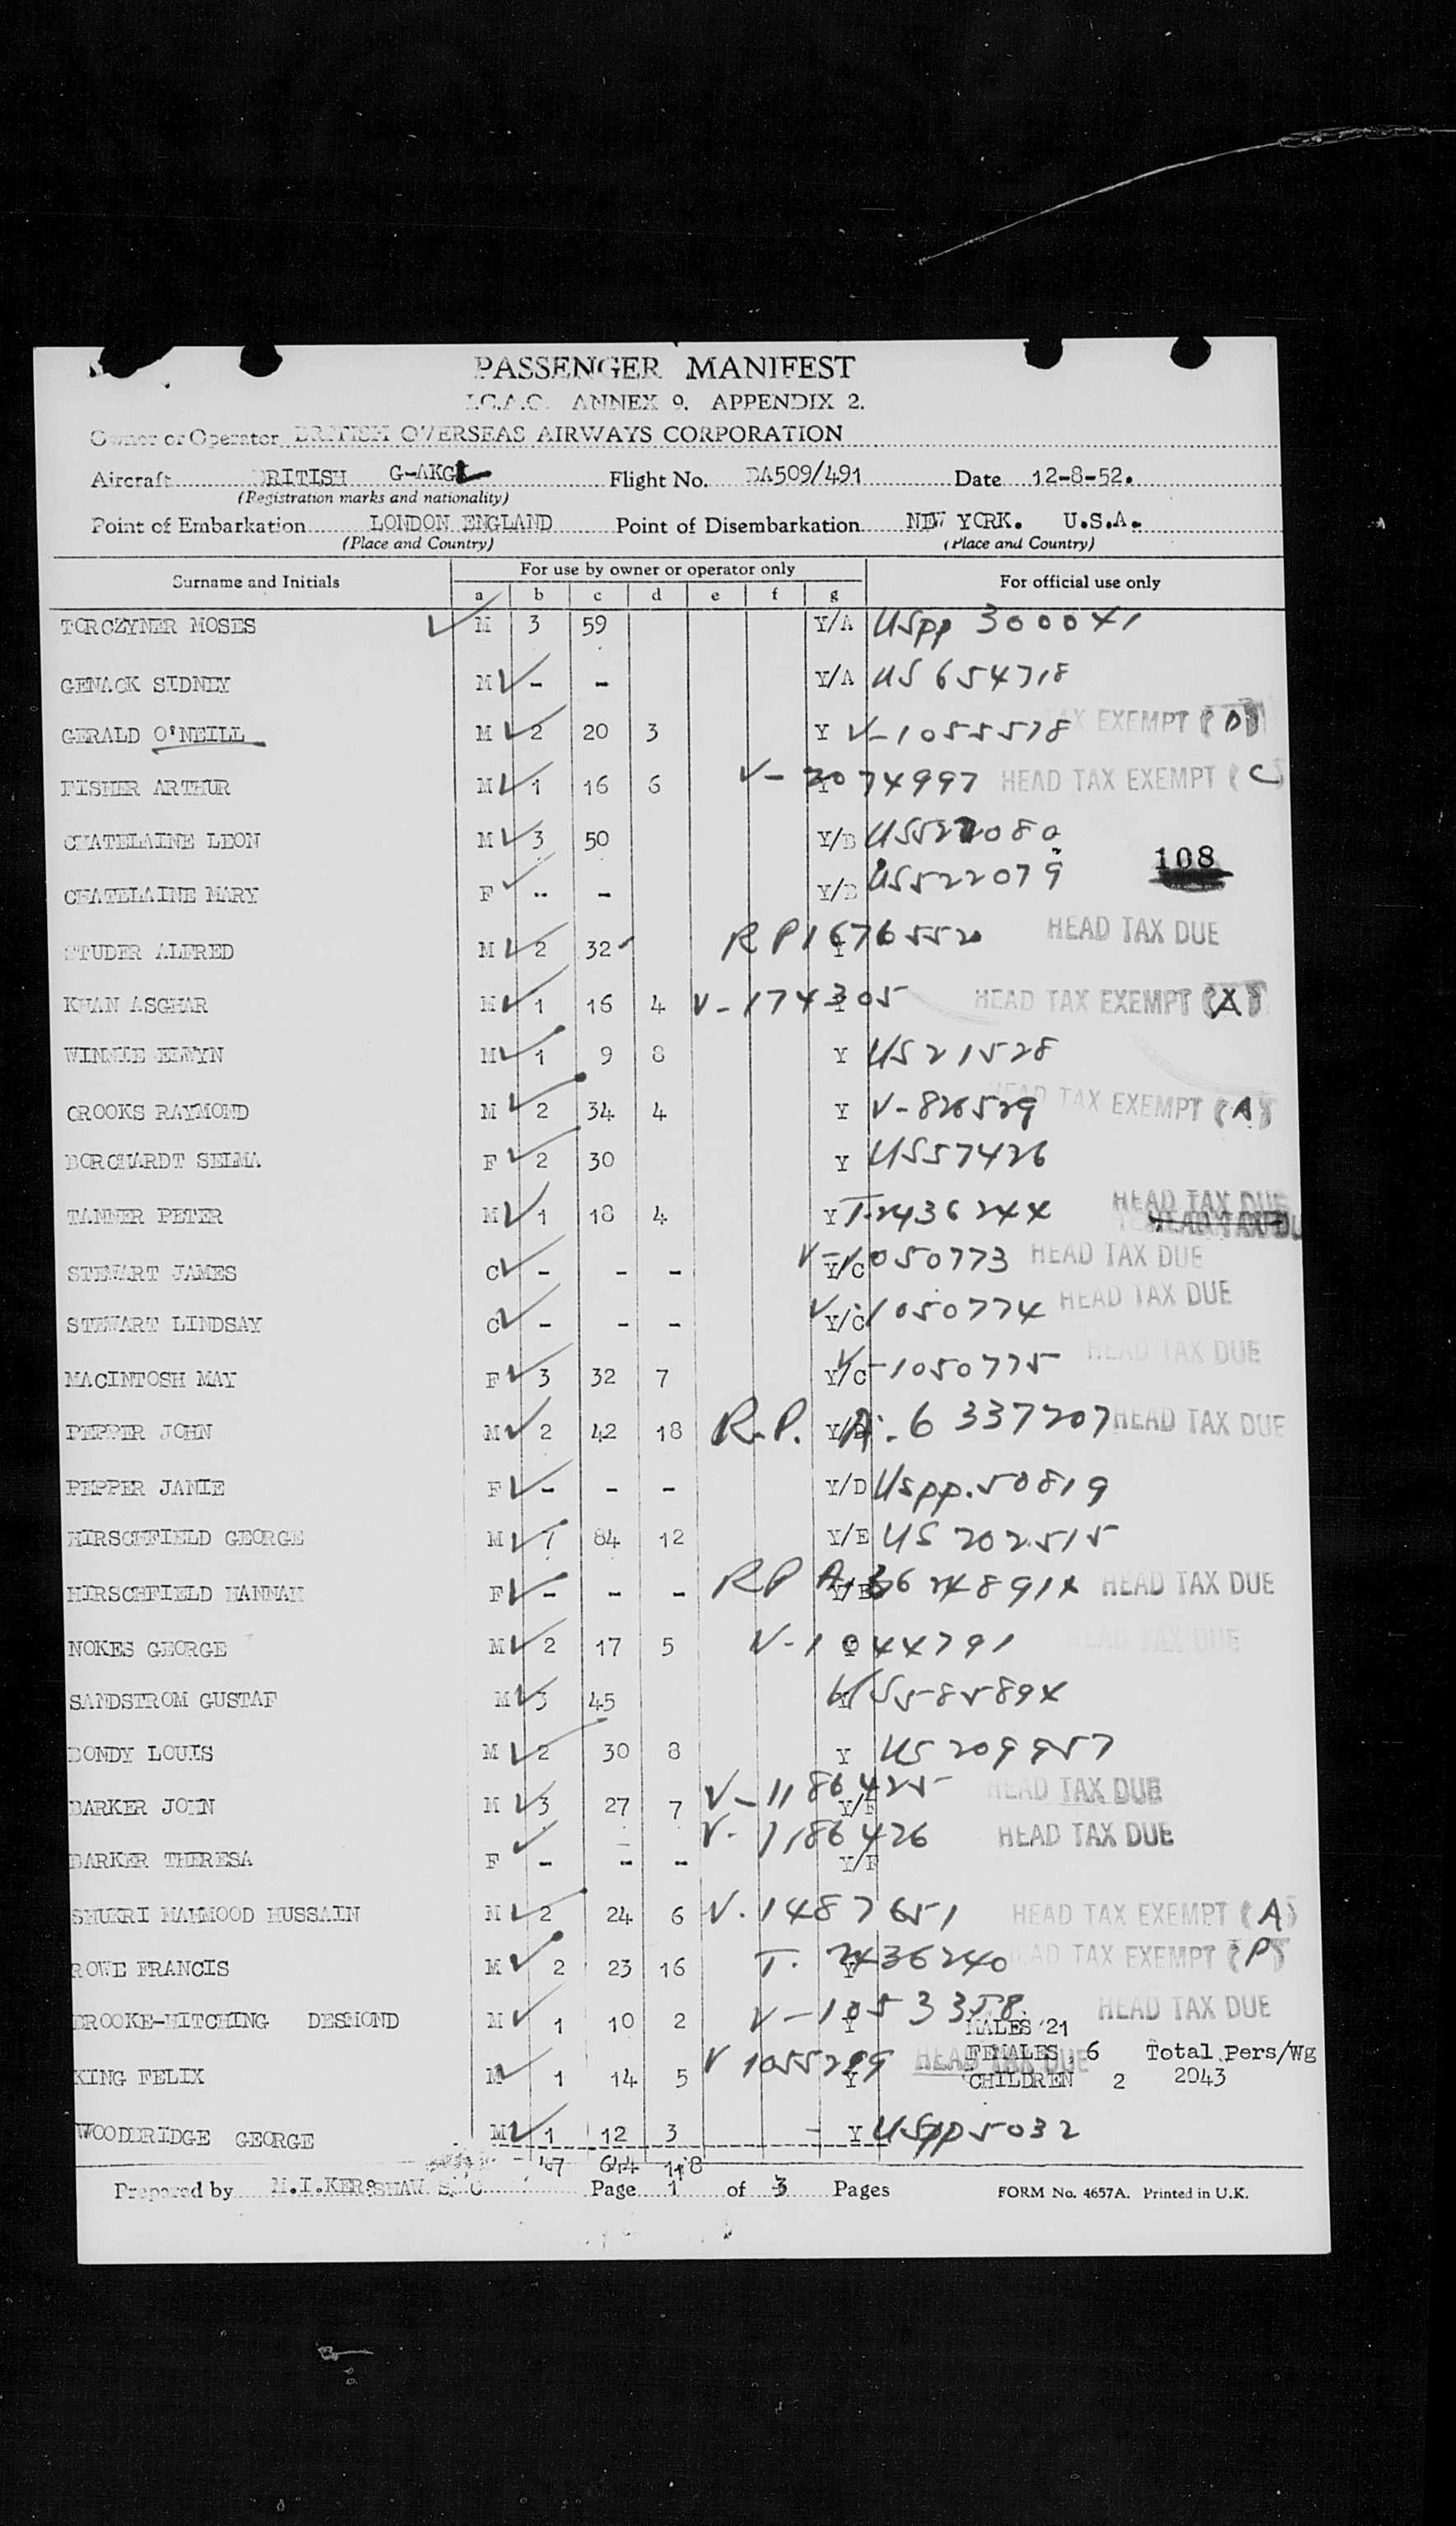 PASSENGER MANIFEST
I.C.A.O. ANNEX 9. APPENDIX 2.
Owner or Operator BRITISH OVERSEAS AIRWAYS CORPORATION
Aircraft BRITISH G-AKGL Flight No. BA509/491 Date 12-8-52.
(Registration marks and nationality)
Point of Embarkation LONDON ENGLAND Point of Disembarkation NEW YORK. U.S.A.
(Place and Country) (Place and Country)
Surname and Initials For use by owner or operator only For official use only
a b c d e f g
TORCZYNER MOSES M 3 59 Y/A USpp 300041
GENACK SIDNEY M - - Y/A US 654718
GERALD O'NEILL M 2 20 3 Y V-1055578 TAX EXEMPT (D)
FISHER ARTHUR M 1 16 6 Y V-2074997 HEAD TAX EXEMPT (C)
CHATELAINE LEON M 3 50 Y/B US522080
CHATELAINE MARY F - - Y/B US522079
108
STUDER ALFRED M 2 32 Y RP1676552 HEAD TAX DUE
KHAN ASGHAR M 1 16 4 Y V-174305 HEAD TAX EXEMPT (A)
WINNIE ELWYN M 1 9 8 Y US21528
CROOKS RAYMOND M 2 34 4 Y V-826529 HEAD TAX EXEMPT (A)
BORCHARDT SELMA F 2 30 Y US57426
TANNER PETER M 1 18 4 Y T-2436244 HEAD TAX DUE
HEAD TAX DU
STEWART JAMES C - - - Y/C V-1050773 HEAD TAX DUE
STEWART LINDSAY C - - - Y/C V-1050774 HEAD TAX DUE
MACINTOSH MAY F 3 32 7 Y/C V-1050775 HEAD TAX DUE
PEPPER JOHN M 2 42 18 Y/D R.P. A:6 337207 HEAD TAX DUE
PEPPER JANIE F - - - Y/D USpp.50819
HIRSCHFIELD GEORGE M 7 84 12 Y/E US 202515
HIRSCHFIELD HANNAH F - - - Y/E RP HEAD TAX DUE
NOKES GEORGE M 2 17 5 Y V-1044791 HEAD TAX DUE
SANDSTROM GUSTAF M 3 45 Y US585894
BONDY LOUIS M 2 30 8 Y US 209957
BARKER JOHN M 3 27 7 Y/F V-1186425 HEAD TAX DUE
BARKER THERESA F - - - Y/F V-1186426 HEAD TAX DUE
SHUKRI MAHMOOD HUSSAIN M 2 24 6 V.1487651 HEAD TAX EXEMPT (A)
ROWE FRANCIS M 2 23 16 Y T. 2436240 HEAD TAX EXEMPT (P)
BROOKE-HITCHING DESMOND M 1 10 2 Y V-1053358 HEAD TAX DUE
MALES 21
KING FELIX M 1 14 5 Y V 1055299 HEAD TAX DUE
FEMALES, 6 Total Pers/Wg
CHILDREN 2 2043
WOODBRIDGE GEORGE M 1 12 3 - Y USpp5032
47 644 118
Prepared by M.I.KERSHAW S. O Page 1 of 3 Pages FORM No. 4657A. Printed in U.K.